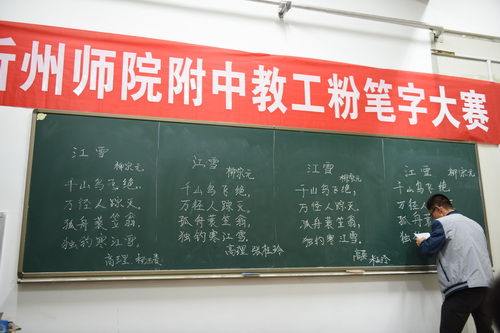 忻州师院附中教工粉笔字大赛
江雪
柳宗元
千山鸟飞绝,
万径人踪灭。
孤舟蓑笠翁,
独钓寒江雪。
高理
江雪
柳宗元
千山鸟飞绝,
万径人踪灭。
孤舟蓑笠翁,
独钓寒江雪。
高理 张
江雪
柳宗元
千山鸟飞绝,
万径人踪灭。
孤舟蓑笠翁,
独钓寒江雪。
江雪
柳宗元
千山鸟飞绝,
万径人踪
孤舟蓑
独钓